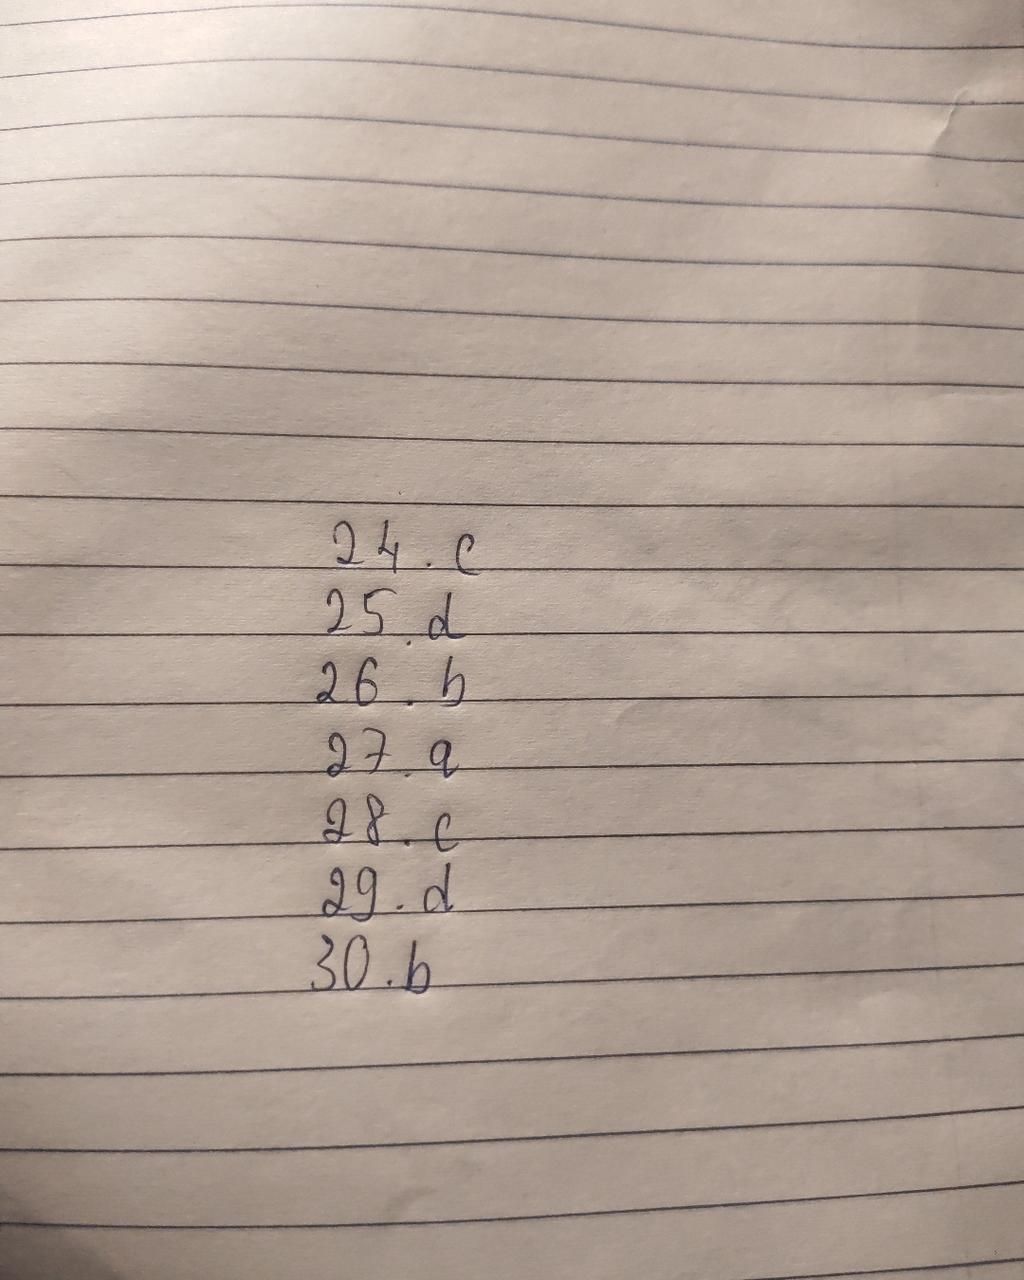 24. c
25. d
26. b
27. a
28. c
29. d
30. b